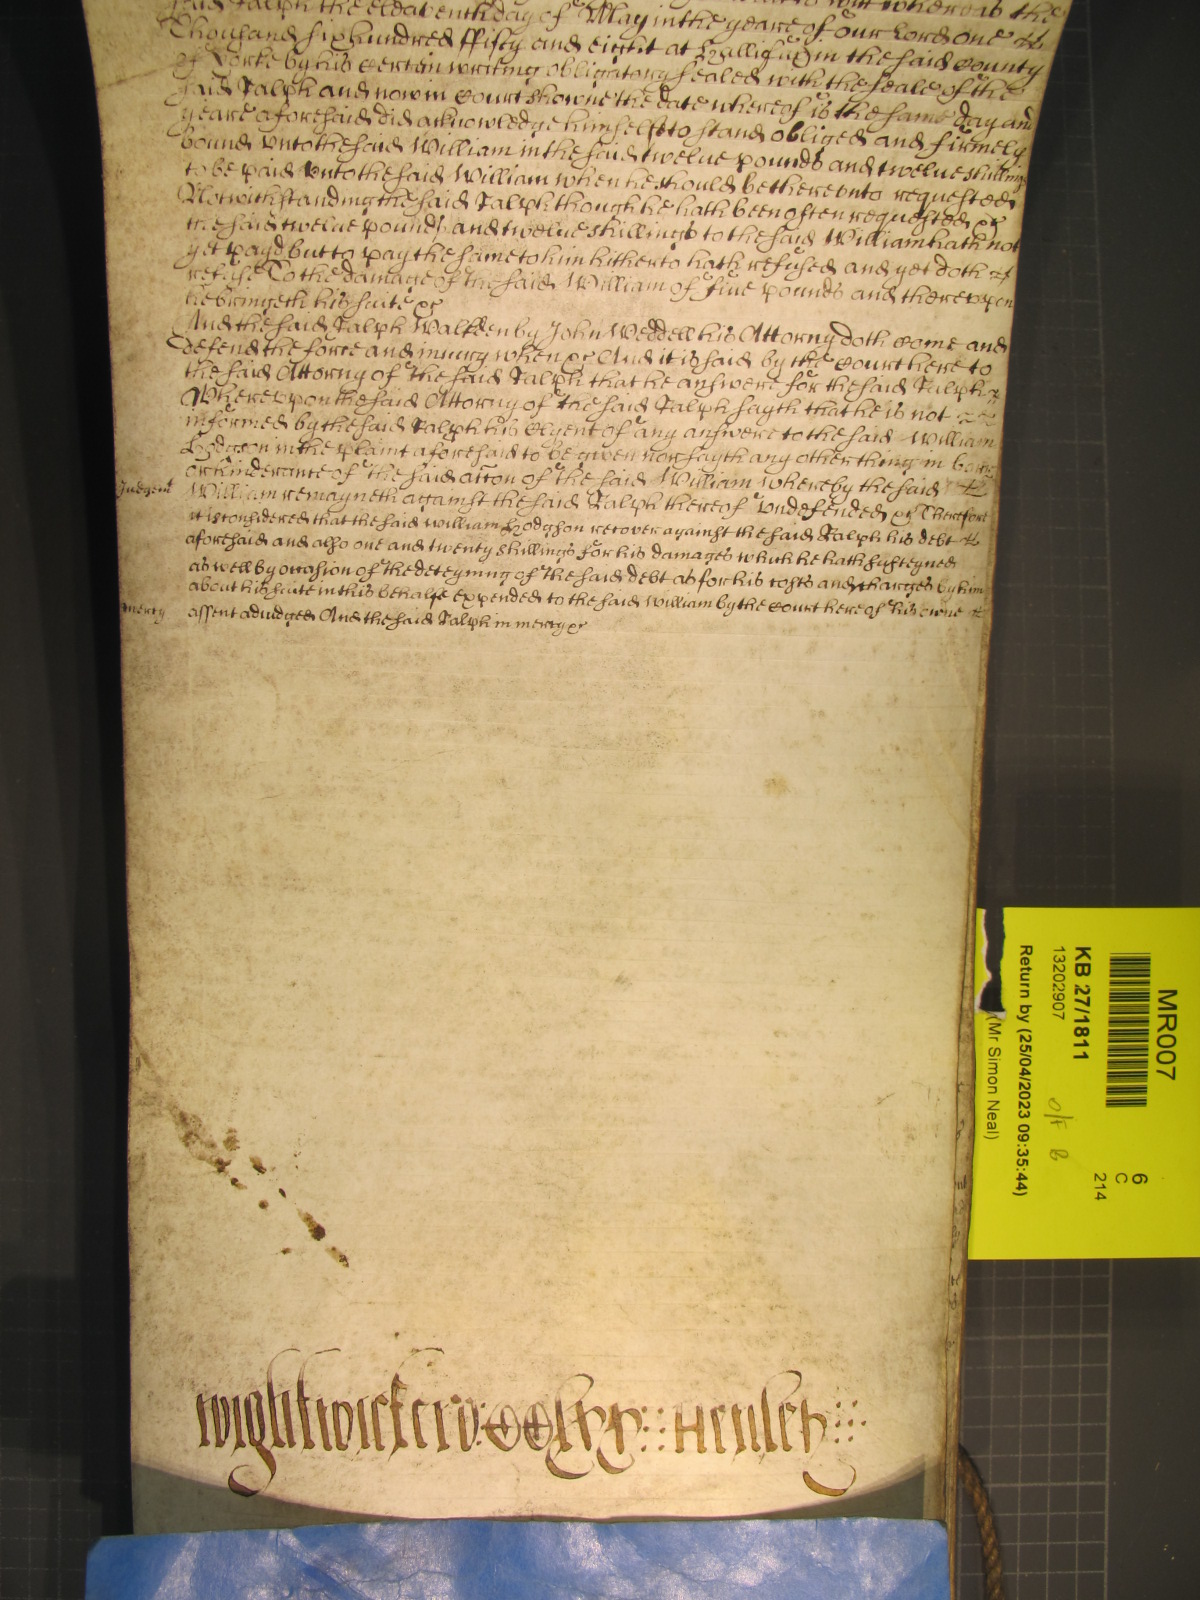 said Ralph the eleaventh day of May in the yeare of our Lord one
Thousand six hundred ffifty and eight at Hallifax in the said County
of Yorke by his certein writing obligatory sealed with the seale of the
said Ralph and now in Court showne the date whereof is the same day and
yeare aforesaid did acknowledge himselfe to stand obliged and firmely
bound unto the said William in the said twelve pounds and twelve shillings
to be paid unto the said William when he should be thereunto requested
Notwithstanding the said Ralph though he hath been often requested &c
the said twelve pounds and twelve shillings to the said William hath not
yet payd but to pay the same to him hitherto hath refused and yet doth
refuse To the damage of the said William of five pounds and thereupon
he bringeth his suite &c
And the said Ralph Walkden by John Weddell his Attorny doth come and
defend the force and iniury when &c And it is said by the Court here to
the said Attorny of the said Ralph that he answere for the said Ralph
Whereupon the said Attorny of the said Ralph sayth that he is not
informed by the said Ralph his Clyent of any answere to the said William
Hodgson in the plaint aforesaid to be given nor sayth any other thing in barr
or hinderance of the said accon of the said William whereby the said
William remayneth against the said Ralph thereof undefended &c Therefore
Judgent
it is considered that the said William Hodgson recover against the said Ralph his debt
aforesaid and also one and twenty shillings for his damages which he hath susteyned
as well by occasion of the deteyning of the said debt as for his costs and charges by him
about his suite in this behalfe expended to the said William by the Court here of his owne
mercy
assent adiudged And the said Ralph in mercy &c
Wightwicke
Henley
MR007
KB 27/1811
13202907
Return by (25/04/2023 09:35:44)
(Mr Simon Neal)
6
C
214